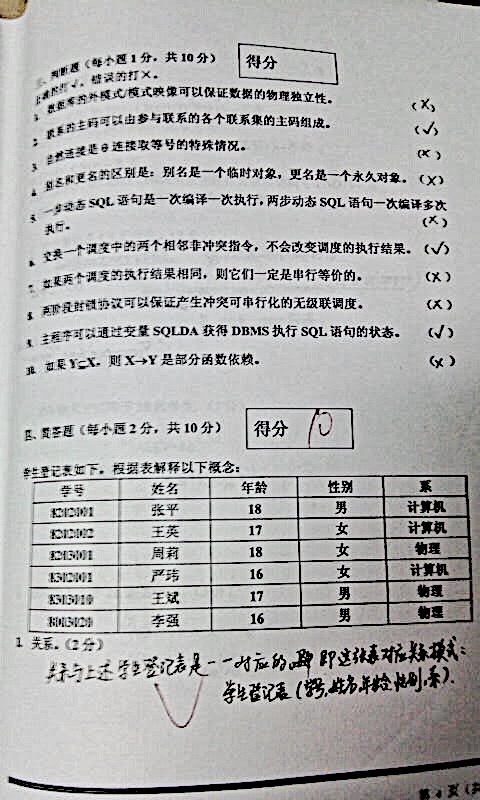 判断题（每小题1分，共10分） 得分
正确的打√，错误的打×。
1. 数据库的外模式/模式映像可以保证数据的物理独立性。 （×）
2. 联系的主码可以由参与联系的各个联系集的主码组成。 （√）
3. 自然连接是θ连接取等号的特殊情况。 （×）
4. 别名和更名的区别是：别名是一个临时对象，更名是一个永久对象。（×）
5. 一步动态SQL语句是一次编译一次执行，两步动态SQL语句一次编译多次
执行。 （×）
6. 交换一个调度中的两个相邻非冲突指令，不会改变调度的执行结果。（√）
7. 如果两个调度的执行结果相同，则它们一定是串行等价的。 （×）
8. 两阶段封锁协议可以保证产生冲突可串行化的无级联调度。 （×）
9. 主程序可以通过变量SQLDA获得DBMS执行SQL语句的状态。 （√）
10. 如果Y⊆X，则X→Y是部分函数依赖。 （×）
四、简答题（每小题2分，共10分） 得分 10
学生登记表如下，根据表解释以下概念：
学号 姓名 年龄 性别 系
8202001 张平 18 男 计算机
8202002 王英 17 女 计算机
8203001 周莉 18 女 物理
8302001 严玮 16 女 计算机
8303010 王斌 17 男 物理
8003020 李强 16 男 物理
1. 关系。（2分）
关系与上述学生登记表是一一对应的 即这张表对应关系模式：
学生登记表（学号，姓名，年龄，性别，系）．
第4页（共